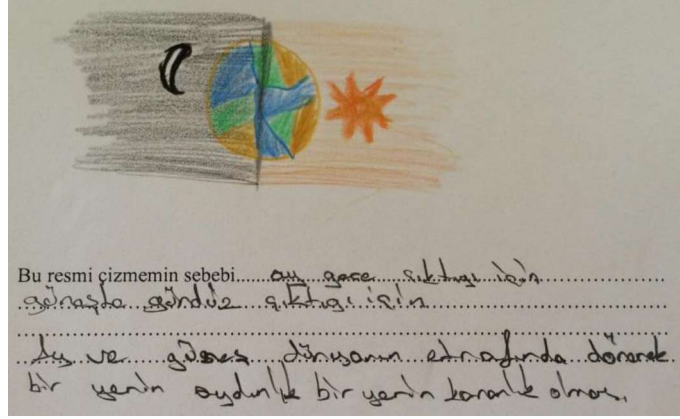 Bu resmi çizmemin sebebi...... ay gece çıktığı için
güneşte gündüz çıktığı için
Ay ve güneş dünyanın etrafında dönerek
bir yerin aydınlık bir yerin karanlık olması.